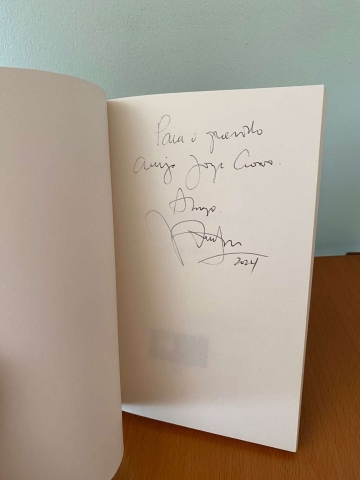 Para o querido
amigo Jorge
Abraço.
2024